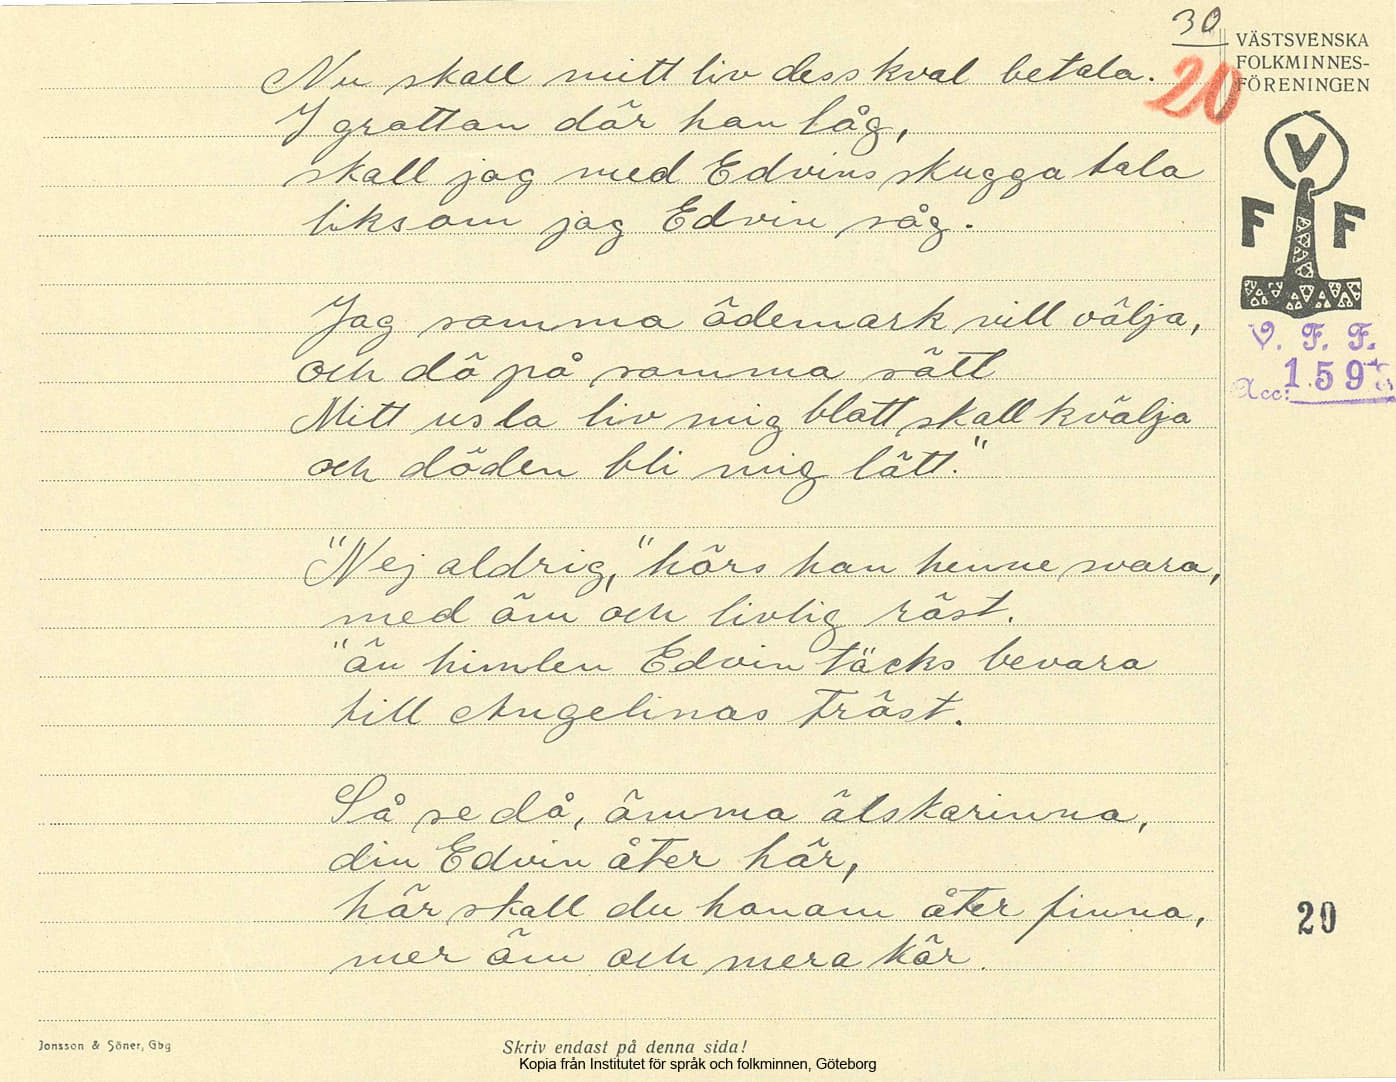 30
20
VÄSTSVENSKA
FOLKMINNES-
FÖRENINGEN
V
F F
V. F. F.
Acc: 1593
Nu skall mitt liv dess kval betala.
I grottan där han låg,
skall jag med Edvins skugga tala
liksom jag Edvin såg.
Jag samma ödemark vill välja,
och dö på samma sätt
Mitt usla liv mig blott skall kvälja
och döden bli mig lätt."
"Nej aldrig," hörs han henne svara,
med öm och livlig röst.
"än himlen Edvin täcks bevara
till Angelinas tröst.
Så se då, ömma älskarinna,
din Edvin åter här,
här skall du honom åter finna,
mer öm och mera kär.
20
Jonsson & Söner, Gbg
Skriv endast på denna sida!
Kopia från Institutet för språk och folkminnen, Göteborg